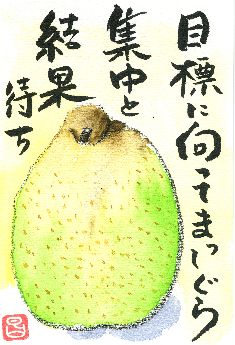 目標に向ってまっしぐら
集中と
結果
待ち